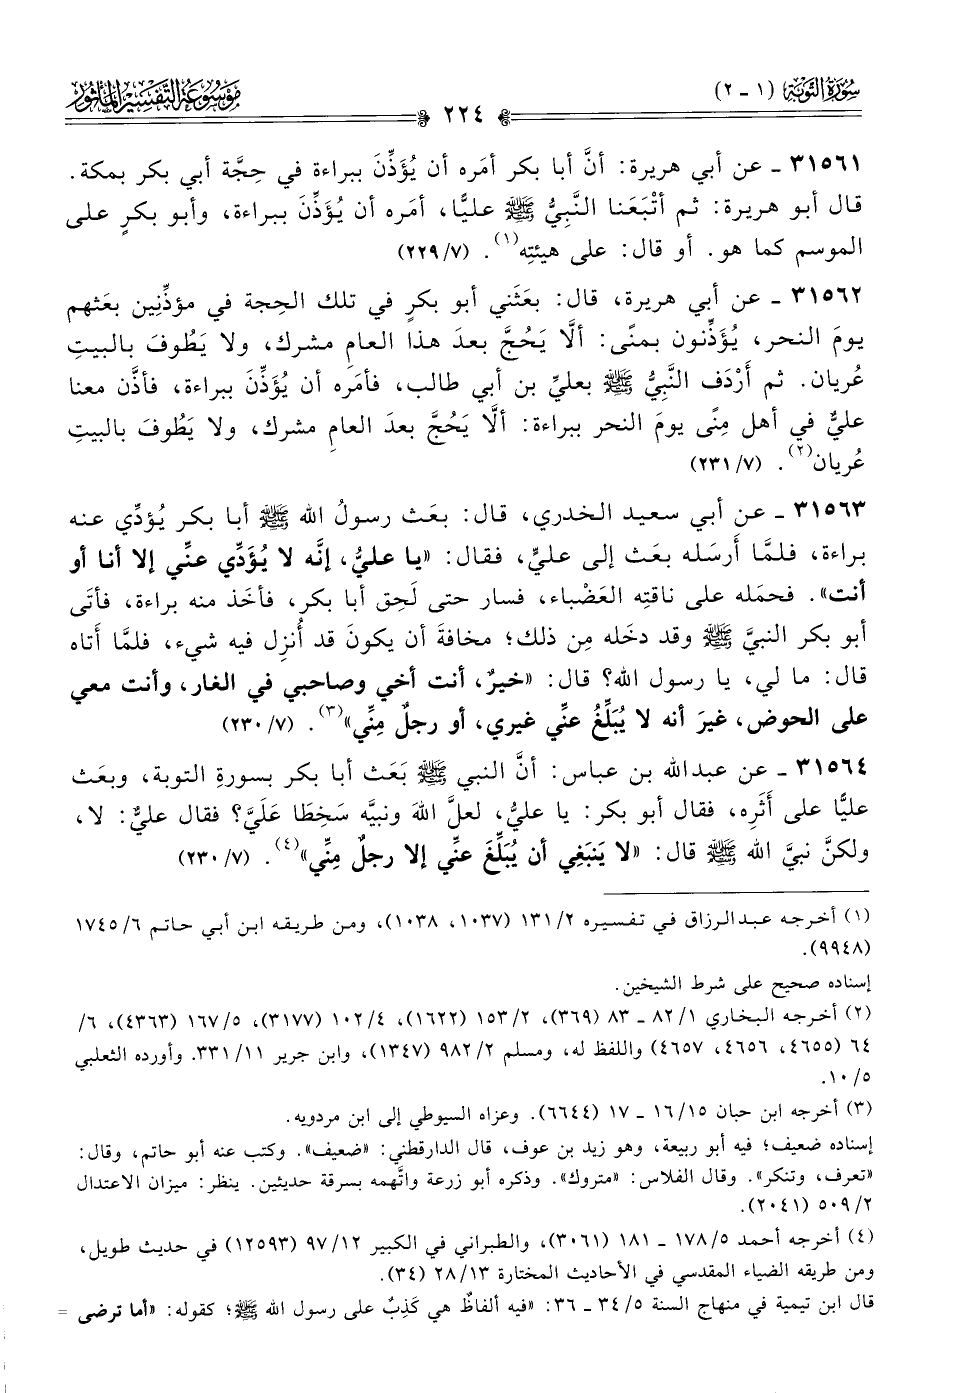 سُورَةُ التَّوْبَةِ (١ - ٢)
٢٢٤
مَوْسُوعَةُ التَّفْسِيرِ المَأْثُورِ
٣١٥٦١ - عن أبي هريرة: أنَّ أبا بكر أمَره أن يُؤَذِّنَ ببراءة في حِجَّة أبي بكر بمكة.
قال أبو هريرة: ثم أتْبَعَنا النَّبِيُّ ﷺ عليًّا، أمَره أن يُؤَذِّنَ ببراءة، وأبو بكرٍ على
الموسم كما هو. أو قال: على هيئتِه(١). (٢٢٩/٧)
٣١٥٦٢ - عن أبي هريرة، قال: بعَثني أبو بكرٍ في تلك الحِجة في مؤذِّنِين بعَثهم
يومَ النحر، يُؤَذِّنون بمنًى: ألَّا يَحُجَّ بعدَ هذا العامِ مشرك، ولا يَطُوفَ بالبيتِ
عُريان. ثم أَرْدَف النَّبِيُّ ﷺ بعليِّ بن أبي طالب، فأمَره أن يُؤَذِّنَ ببراءة، فأذَّن معنا
عليٌّ في أهل مِنًى يومَ النحر ببراءة: ألَّا يَحُجَّ بعدَ العامِ مشرك، ولا يَطُوفَ بالبيتِ
عُريان(٢). (٢٣١/٧)
٣١٥٦٣ - عن أبي سعيد الخدري، قال: بعَث رسولُ الله ﷺ أبا بكر يُؤدِّي عنه
براءة، فلمَّا أَرسَله بعَث إلى عليٍّ، فقال: «يا عليُّ، إنَّه لا يُؤَدِّي عنِّي إلا أنا أو
أنت». فحمَله على ناقتِه العَضْباء، فسار حتى لَحِق أبا بكر، فأخَذ منه براءة، فأتَى
أبو بكر النبيَّ ﷺ وقد دخَله مِن ذلك؛ مخافةَ أن يكونَ قد أُنزِل فيه شيء، فلمَّا أتاه
قال: ما لي، يا رسول الله؟ قال: «خيرٌ، أنت أخي وصاحبي في الغار، وأنت معي
على الحوض، غيرَ أنه لا يُبَلِّغُ عنِّي غيري، أو رجلٌ مِنِّي»(٣). (٢٣٠/٧)
٣١٥٦٤ - عن عبدالله بن عباس: أنَّ النبي ﷺ بَعَث أبا بكر بسورةِ التوبة، وبعَث
عليًّا على أَثَرِه، فقال أبو بكر: يا عليُّ، لعلَّ اللهَ ونبيَّه سَخِطَا عَلَيَّ؟ فقال عليٌّ: لا،
ولكنَّ نبيَّ الله ﷺ قال: «لا يَنبَغِي أن يُبَلِّغَ عنِّي إلا رجلٌ مِنِّي»(٤). (٢٣٠/٧)
(١) أخرجه عبدالرزاق في تفسيره ١٣١/٢ (١٠٣٧، ١٠٣٨)، ومن طريقه ابن أبي حاتم ١٧٤٥/٦
(٩٩٤٨).
إسناده صحيح على شرط الشيخين.
(٢) أخرجه البخاري ٨٢/١ - ٨٣ (٣٦٩)، ١٥٣/٢ (١٦٢٢)، ١٠٢/٤ (٣١٧٧)، ١٦٧/٥ (٤٣٦٣)، ٦/
٦٤ (٤٦٥٥، ٤٦٥٦، ٤٦٥٧) واللفظ له، ومسلم ٩٨٢/٢ (١٣٤٧)، وابن جرير ٣٣١/١١. وأورده الثعلبي
١٠/٥.
(٣) أخرجه ابن حبان ١٦/١٥ - ١٧ (٦٦٤٤). وعزاه السيوطي إلى ابن مردويه.
إسناده ضعيف؛ فيه أبو ربيعة، وهو زيد بن عوف، قال الدارقطني: «ضعيف». وكتب عنه أبو حاتم، وقال:
«تعرف، وتنكر». وقال الفلاس: «متروك». وذكره أبو زرعة واتَّهمه بسرقة حديثين. ينظر: ميزان الاعتدال
٥٠٩/٢ (٢٠٤١).
(٤) أخرجه أحمد ١٧٨/٥ - ١٨١ (٣٠٦١)، والطبراني في الكبير ٩٧/١٢ (١٢٥٩٣) في حديث طويل،
ومن طريقه الضياء المقدسي في الأحاديث المختارة ٢٨/١٣ (٣٤).
قال ابن تيمية في منهاج السنة ٣٤/٥ - ٣٦: «فيه ألفاظٌ هي كَذِبٌ على رسول الله ﷺ؛ كقوله: «أما ترضى =